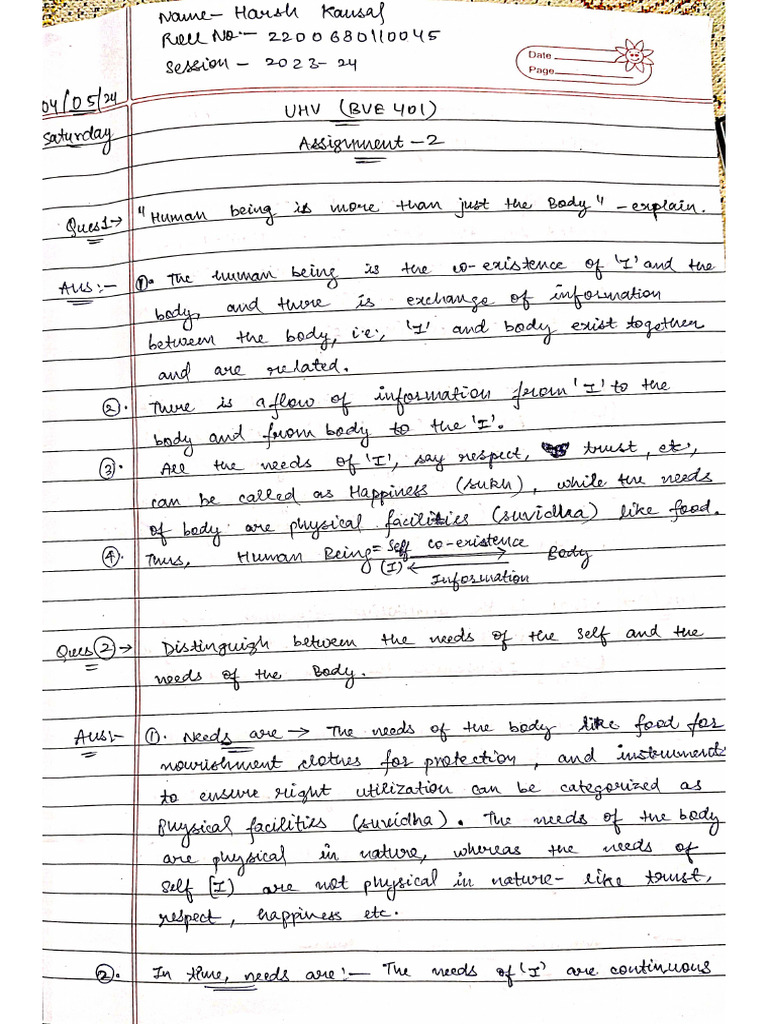 Name- Harsh Kausal
Roll No:- 2200680110045
Session - 2023-24
Date
Page
04/05/24
Saturday
UHV (BVE 401)
Assignment-2
Ques1→ "Human being is more than just the Body" -explain.
Ans:- ①. The human being is the co-existence of 'I' and the
body, and there is exchange of information
between the body, i.e., 'I' and body exist together
and are related.
②. There is a flow of information from 'I' to the
body and from body to the 'I'.
③. All the needs of 'I', say respect, trust, etc,
can be called as Happiness (sukh), while the needs
of body are physical facilities (suvidha) like food.
④. Thus, Human Being = Self (I) co-existence Information Body
Ques② → Distinguish between the needs of the Self and the
needs of the Body.
Ans:- ①. Needs are → The needs of the body like food for
nourishment clothes for protection, and instruments
to ensure right utilization can be categorized as
Physical facilities (suvidha). The needs of the body
are physical in nature, whereas the needs of
self (I) are not physical in nature- like trust,
respect, happiness etc.
②. In time, needs are:- The needs of 'I' are continuous